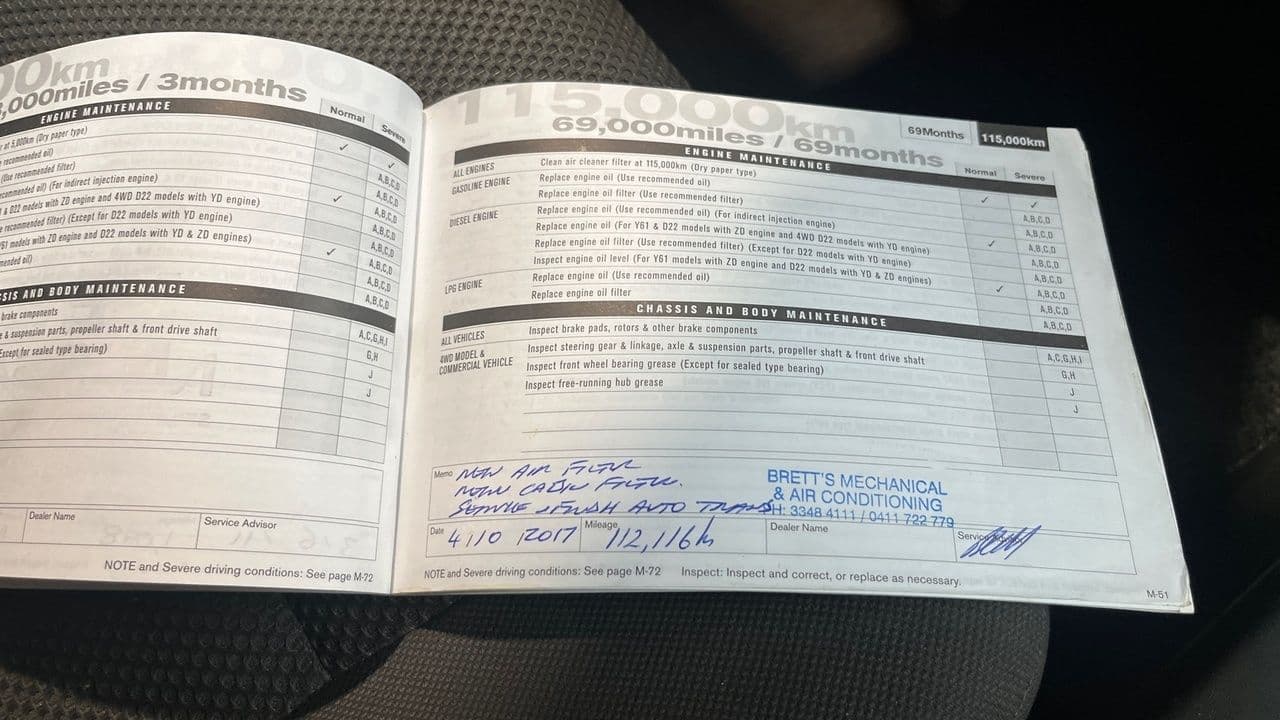 00km
,000miles / 3months
Normal
Severe
ENGINE MAINTENANCE
at 5,000km (Dry paper type)
✓
✓
recommended oil)
A,B,C,D
(Use recommended filter)
A,B,C,D
commended oil) (For indirect injection engine)
A,B,C,D
& D22 models with ZD engine and 4WD D22 models with YD engine)
✓
A,B,C,D
recommended filter) (Except for D22 models with YD engine)
A,B,C,D
Y61 models with ZD engine and D22 models with YD & ZD engines)
A,B,C,D
mended oil)
✓
A,B,C,D
A,B,C,D
SIS AND BODY MAINTENANCE
brake components
A,C,G,H,I
& suspension parts, propeller shaft & front drive shaft
G,H
Except for sealed type bearing)
J
J
Dealer Name
Service Advisor
NOTE and Severe driving conditions: See page M-72
115,000km
69,000miles / 69months
69Months
115,000km
Normal
Severe
ENGINE MAINTENANCE
ALL ENGINES
Clean air cleaner filter at 115,000km (Dry paper type)
✓
✓
GASOLINE ENGINE
Replace engine oil (Use recommended oil)
A,B,C,D
Replace engine oil filter (Use recommended filter)
A,B,C,D
DIESEL ENGINE
Replace engine oil (Use recommended oil) (For indirect injection engine)
A,B,C,D
Replace engine oil (For Y61 & D22 models with ZD engine and 4WD D22 models with YD engine)
✓
A,B,C,D
Replace engine oil filter (Use recommended filter) (Except for D22 models with YD engine)
A,B,C,D
Inspect engine oil level (For Y61 models with ZD engine and D22 models with YD & ZD engines)
✓
A,B,C,D
LPG ENGINE
Replace engine oil (Use recommended oil)
A,B,C,D
Replace engine oil filter
A,B,C,D
CHASSIS AND BODY MAINTENANCE
ALL VEHICLES
Inspect brake pads, rotors & other brake components
A,C,G,H,I
4WD MODEL &
COMMERCIAL VEHICLE
Inspect steering gear & linkage, axle & suspension parts, propeller shaft & front drive shaft
G,H
Inspect front wheel bearing grease (Except for sealed type bearing)
J
Inspect free-running hub grease
J
Memo NEW AIR FILTER
NEW CABIN FILTER.
SERVICE & FLUSH AUTO TRANS
BRETT'S MECHANICAL
& AIR CONDITIONING
H: 3348 4111 / 0411 722 779
Date 4/10/2017
Mileage 112,116km
Dealer Name
Service
NOTE and Severe driving conditions: See page M-72
Inspect: Inspect and correct, or replace as necessary.
M-51